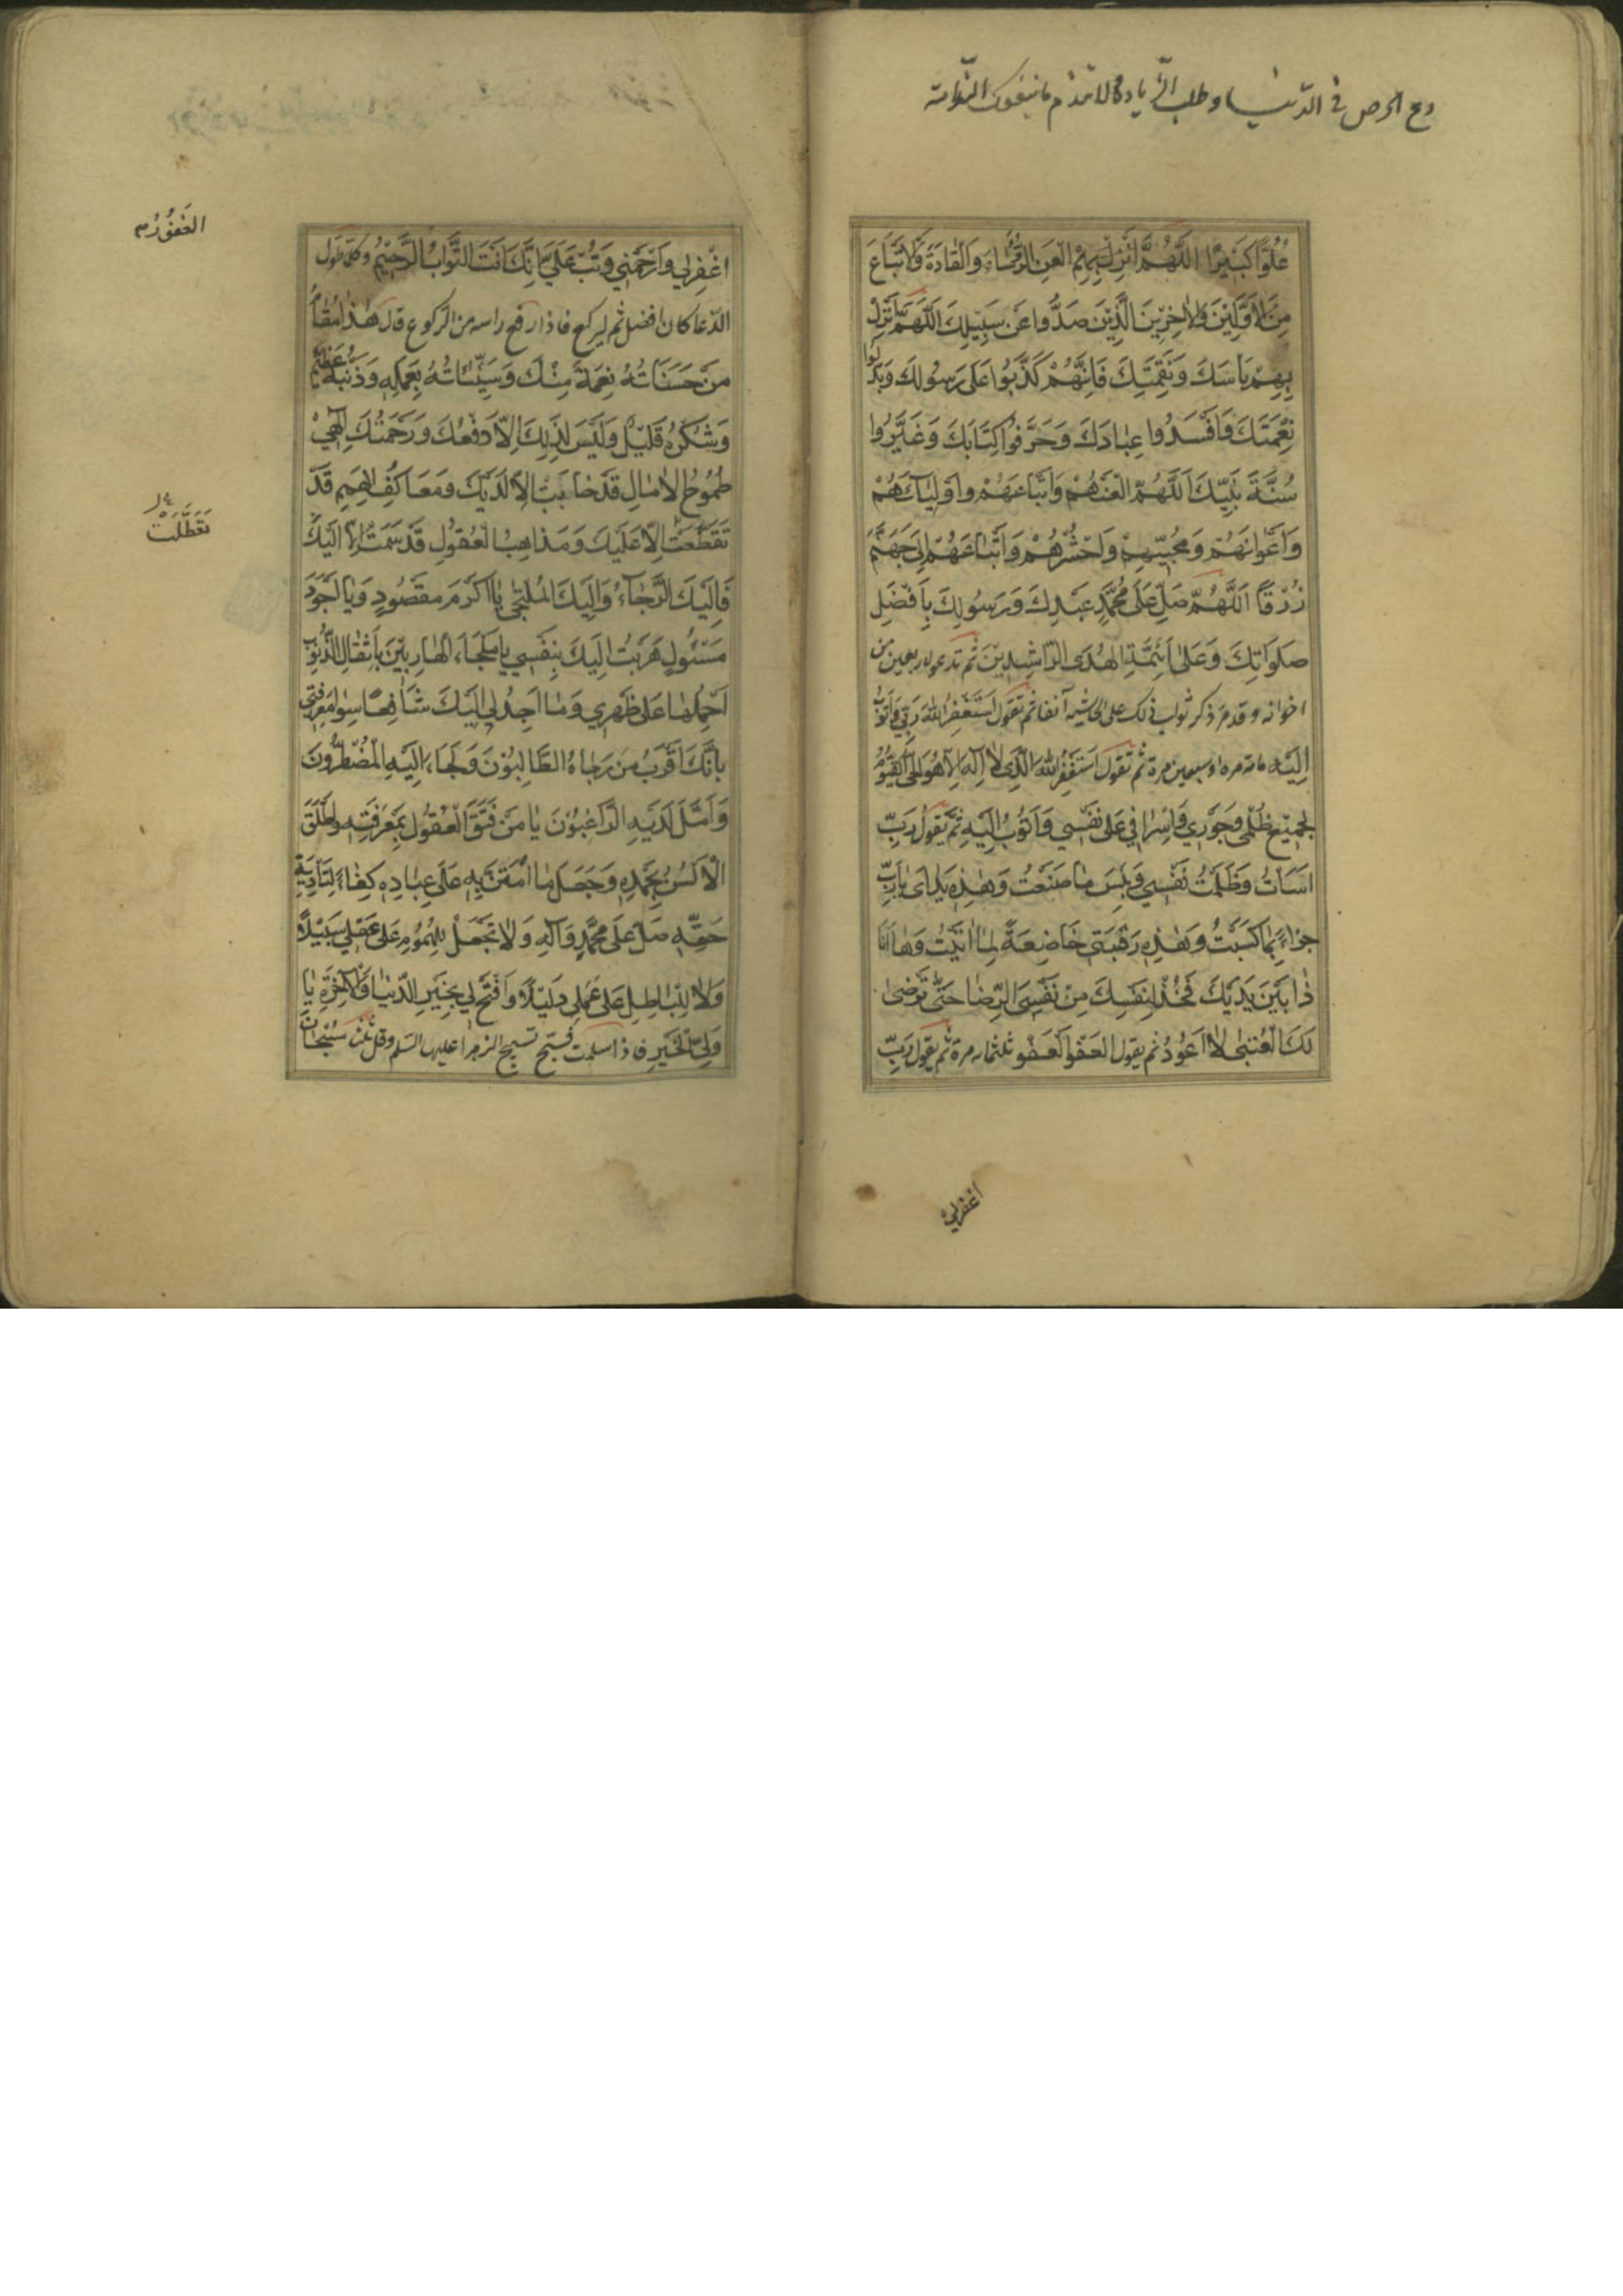 دع الحرص فی الدّنیا و طلب الزّیادة
عُلُوًّا كَبِيرًا اَللّهُمَّ الْعَنِ الرُّؤَسَاءَ وَالْقَادَةَ وَالْاَتْبَاعَ
مِنَ الْاَوَّلِيْنَ وَالْاٰخِرِيْنَ الَّذِيْنَ صَدُّوا عَنْ سَبِيْلِكَ اَللّهُمَّ اَنْزِلْ
بِهِمْ بَاسَكَ وَنَقِمَتِكَ فَاِنَّهُمْ كَذَّبُوا عَلٰى رَسُولِكَ وَبَدَّلُوا
نِعْمَتَكَ وَاَفْسَدُوا عِبَادَكَ وَحَرَّفُوا كِتَابَكَ وَغَيَّرُوا
سُنَّةَ نَبِيِّكَ اَللّهُمَّ الْعَنْهُمْ وَاَتْبَاعَهُمْ وَاَوْلِيَآءَهُمْ
وَاَعْوَانَهُمْ وَمُحِبِّيهِمْ وَاحْشُرْهُمْ وَاَتْبَاعَهُمْ اِلٰى جَهَنَّمَ
زُرْقًا اَللّهُمَّ صَلِّ عَلٰى مُحَمَّدٍ عَبْدِكَ وَرَسُولِكَ بِاَفْضَلِ
صَلَوَاتِكَ وَعَلٰى اَئِمَّةِ الْهُدَى الرَّاشِدِيْنَ ثم تدعو لاربعين من
اخوانه و قد مرّ ذكر ثواب ذلك على الحاشیه آنفا ثم تقول اَسْتَغْفِرُ اللهَ رَبِّي وَاَتُوْبُ
اِلَيْهِ مائة مرة او سبعين مرة ثم تقول اَسْتَغْفِرُ اللهَ الَّذِي لَا اِلٰهَ اِلَّا هُوَ الْحَيُّ الْقَيُّوْمُ
لِجَمِيْعِ ظُلْمِي وَجَوْرِي وَاِسْرَافِي عَلٰى نَفْسِي وَاَتُوبُ اِلَيْهِ ثم يقول رَبِّ
اَسَاْتُ وَظَلَمْتُ نَفْسِي وَبِئْسَ مَا صَنَعْتُ وَهٰذِهِ يَدَاىَ يَا رَبِّ
جَزَاءً بِمَا كَسَبَتْ وَهٰذِهِ رَقَبَتِي خَاضِعَةً لِمَا اَتَيْتُ وَهَا اَنَا
ذَا بَيْنَ يَدَيْكَ فَخُذْ لِنَفْسِكَ مِنْ نَفْسِيَ الرِّضَا حَتّٰى تَرْضٰى
لَكَ الْعُتْبٰى لَا اَعُوْدُ ثم يقول الْعَفْوَ الْعَفْوَ ثلثمائة مرة ثم يقول رَبِّ
اغفرلي
اغْفِرْلِي وَارْحَمْنِي وَتُبْ عَلَيَّ اِنَّكَ اَنْتَ التَّوَّابُ الرَّحِيْمُ وكلّما طول
الدّعا كان افضل ثم ليركع فاذا رفع راسه من الركوع قال هٰذَا مَقَامُ
مَنْ حَسَنَاتُهُ نِعْمَةٌ مِنْكَ وَسَيِّئَاتُهُ بِعَمَلِهِ وَذَنْبُهُ عَظِيْمٌ
وَشُكْرُهُ قَلِيْلٌ وَلَيْسَ لِذٰلِكَ اِلَّا دَفْعُكَ وَرَحْمَتُكَ اِلٰهِيْ
طُمُوْحُ الْاٰمَالِ قَدْ خَابَتْ اِلَّا لَدَيْكَ وَمَعَاكِفُ الْهِمَمِ قَدْ
تَقَطَّعَتْ اِلَّا عَلَيْكَ وَمَذَاهِبُ الْعُقُولِ قَدْ سَمَتْ اِلَّا اِلَيْكَ
فَاِلَيْكَ الرَّجَآءُ وَاِلَيْكَ الْمُلْتَجٰى يَا اَكْرَمَ مَقْصُودٍ وَيَا اَجْوَدَ
مَسْئُولٍ هَرَبْتُ اِلَيْكَ بِنَفْسِي يَا مَلْجَاَ الْهَارِبِيْنَ بِاَثْقَالِ الذُّنُوْبِ
اَحْمِلُهَا عَلٰى ظَهْرِي وَمَا اَجِدُ لِي اِلَيْكَ شَافِعًا سِوٰى مَعْرِفَتِي
بِاَنَّكَ اَقْرَبُ مَنْ رَجَاهُ الطَّالِبُوْنَ وَلَجَاَ اِلَيْهِ الْمُضْطَرُّوْنَ
وَاَمَّلَ لَدَيْهِ الرَّاغِبُوْنَ يَا مَنْ فَتَقَ الْعُقُوْلَ بِمَعْرِفَتِهِ وَاَطْلَقَ
الْاَلْسُنَ بِحَمْدِهِ وَجَعَلَ مَا امْتَنَّ بِهِ عَلٰى عِبَادِهِ كِفَاءً لِتَاْدِيَةِ
حَقِّهِ صَلِّ عَلٰى مُحَمَّدٍ وَآلِهِ وَلَا تَجْعَلْ لِلْهُمُوْمِ عَلٰى عَقْلِي سَبِيْلًا
وَلَا لِلْبَاطِلِ عَلٰى عَمَلِي دَلِيْلًا وَافْتَحْ لِي بِخَيْرِ الدُّنْيَا وَالْاٰخِرَةِ يَا
وَلِيَّ الْخَيْرِ فاذا سلمت فسبّح تسبيح الزهرا عليها السلم وقل ثلث سُبْحَانَ
الغَفُوْرُ
تَعَطَّلَتْ